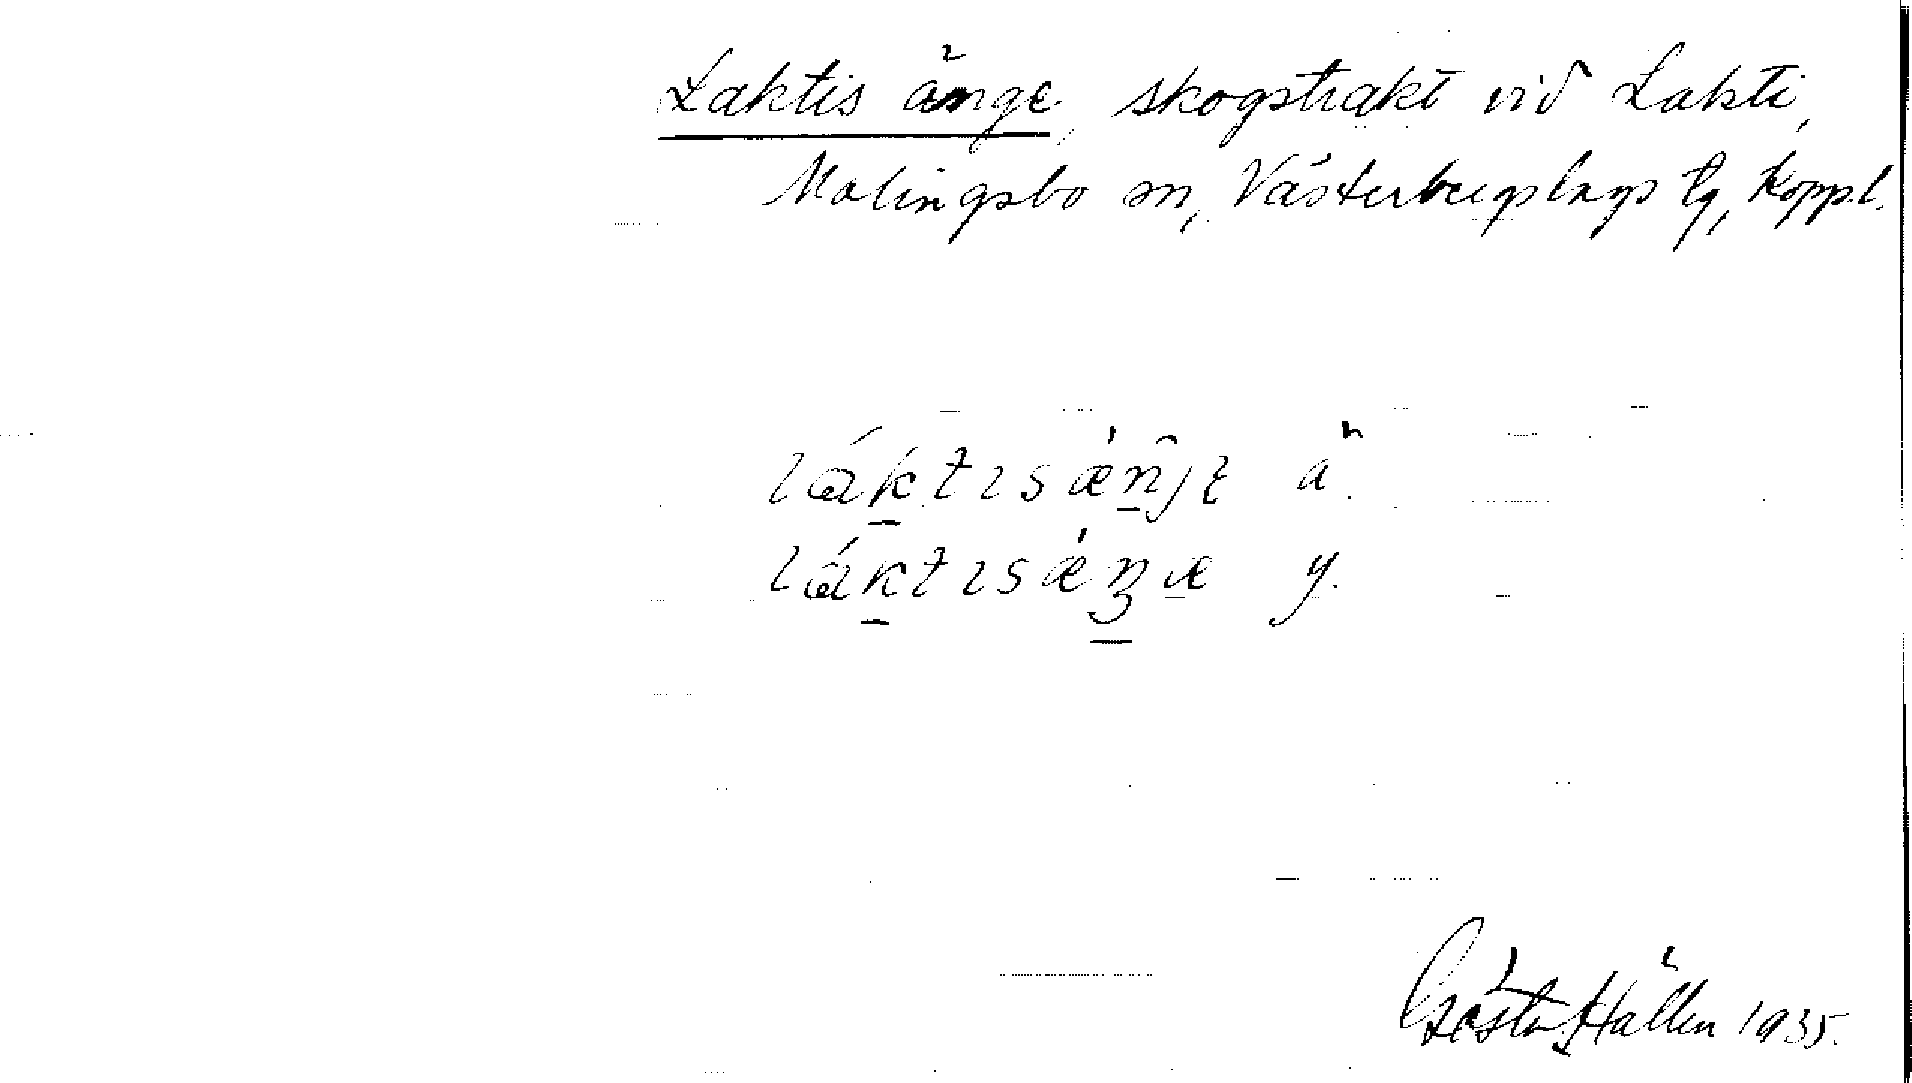 Laktis änge, skogstrakt vid Lakti,
Malingsbo sn, Västerbergslags tg, Koppl.
láktɩsǽn̂jɛ ä.
láktɩsǽŋæ y.
Gösta Hallén 1935.